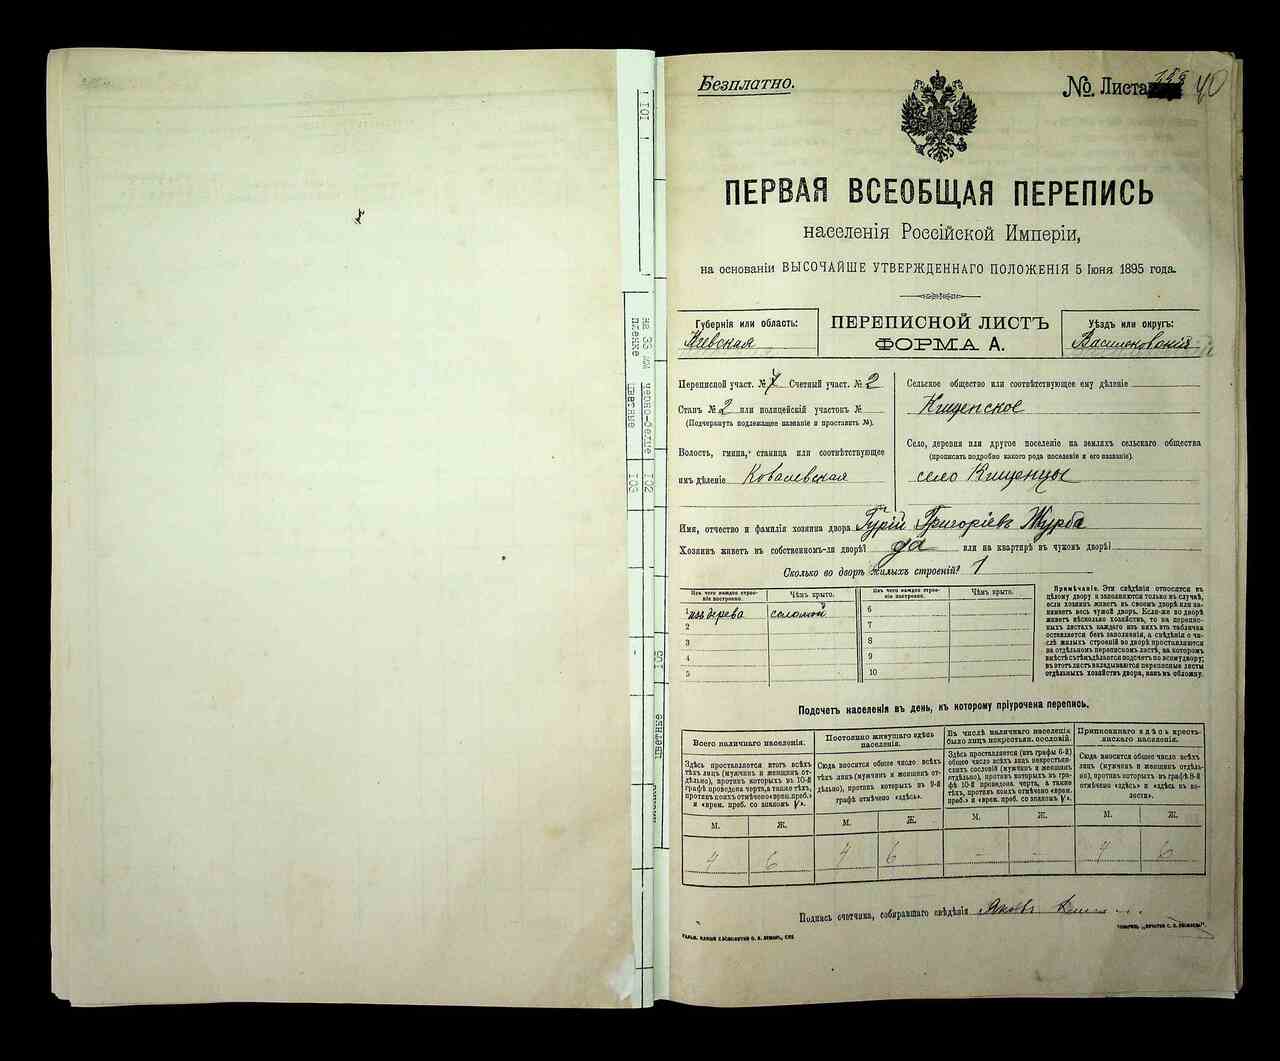 Безплатно.
№ Листа 40
ПЕРВАЯ ВСЕОБЩАЯ ПЕРЕПИСЬ
населенія Россійской Имперіи,
на основаніи ВЫСОЧАЙШЕ УТВЕРЖДЕННАГО ПОЛОЖЕНІЯ 5 Іюня 1895 года.
Губернія или область:
Кіевская
ПЕРЕПИСНОЙ ЛИСТЪ
ФОРМА А.
Уѣздъ или округъ:
Васильковскій
Переписной участ. № 7 Счетный участ. № 2
Станъ № 2 или полицейскій участокъ №
(Подчеркнуть подлежащее названіе и проставить №).
Волость, гмина, станица или соотвѣтствующее
имъ дѣленіе Ковалевская
Сельское общество или соотвѣтствующее ему дѣленіе
Кищенское
Село, деревня или другое поселеніе на земляхъ сельскаго общества
(прописать подробно какого рода поселеніе и его названіе).
село Кищенцы
Имя, отчество и фамилія хозяина двора Гурій Григоріевъ Журба
Хозяинъ живетъ въ собственномъ-ли дворѣ? да или на квартирѣ въ чужомъ дворѣ?
Сколько во дворѣ жилыхъ строеній? 1
Изъ чего каждое строеніе построено.
Чѣмъ крыто.
Изъ чего каждое строеніе построено.
Чѣмъ крыто.
1 изъ дерева соломой 6
2 7
3 8
4 9
5 10
Примѣчаніе. Эти свѣдѣнія относятся къ
цѣлому двору и заполняются только въ случаѣ,
если хозяинъ живетъ въ своемъ дворѣ или занимаетъ
весь чужой дворъ. Если-же во дворѣ
живетъ нѣсколько хозяйствъ, то на переписныхъ
листахъ каждаго изъ нихъ эта табличка
оставляется безъ заполненія, а свѣдѣнія о числѣ
жилыхъ строеній во дворѣ проставляются
на отдѣльномъ переписномъ листѣ, на которомъ
вмѣстѣ съ тѣмъ дѣлается подсчетъ по всему двору;
въ этотъ листъ вкладываются переписные листы
отдѣльныхъ хозяйствъ двора, какъ въ обложку.
Подсчетъ населенія въ день, къ которому пріурочена перепись.
Всего наличнаго населенія.
Здѣсь проставляется итогъ всѣхъ
тѣхъ лицъ (мужчинъ и женщинъ отдѣльно),
противъ которыхъ въ 10-й
графѣ проведена черта, а также тѣхъ,
противъ коихъ отмѣчено «врем. преб.»
и «врем. преб. со знакомъ V».
Постоянно живущаго здѣсь
населенія.
Сюда вносится общее число всѣхъ
тѣхъ лицъ (мужчинъ и женщинъ отдѣльно),
противъ которыхъ въ 9-й
графѣ отмѣчено «здѣсь».
Въ числѣ наличнаго населенія
было лицъ некрестьян. сословій.
Здѣсь проставляется (изъ графы 6-й)
общее число всѣхъ лицъ некрестьянскихъ
сословій (мужчинъ и женщинъ
отдѣльно), противъ которыхъ въ графѣ
10-й проведена черта, а также
тѣхъ, противъ коихъ отмѣчено «врем.
преб.» и «врем. преб. со знакомъ V».
Приписаннаго здѣсь крестьянскаго
населенія.
Сюда вносится общее число всѣхъ
лицъ (мужчинъ и женщинъ отдѣльно),
противъ которыхъ въ графѣ 8-й
отмѣчено «здѣсь» и «здѣсь въ волости».
М. Ж. М. Ж. М. Ж. М. Ж.
4 6 4 6 - - 4 6
Подпись счетчика, собиравшаго свѣдѣнія Яковъ
101
на 35 мм
пленке
черно-белые
цветные
102
103
105
цветные